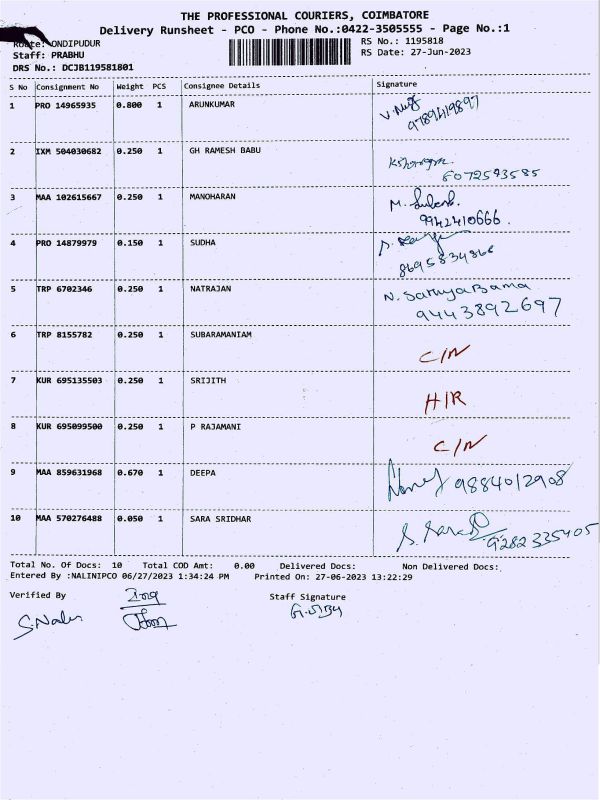 THE PROFESSIONAL COURIERS, COIMBATORE
Delivery Runsheet - PCO - Phone No.:0422-3505555 - Page No.:1
Route: ONDIPUDUR
RS No.: 1195818
Staff: PRABHU
RS Date: 27-Jun-2023
DRS No.: DCJB119581801
S No Consignment No Weight PCS Consignee Details Signature
1 PRO 14965935 0.800 1 ARUNKUMAR
9789419897
2 IXM 504030682 0.250 1 GH RAMESH BABU
3 MAA 102615667 0.250 1 MANOHARAN
9942410666.
4 PRO 14879979 0.150 1 SUDHA
5 TRP 6702346 0.250 1 NATRAJAN N. SathyaBama
9443892697
6 TRP 8155782 0.250 1 SUBARAMANIAM
C/N
7 KUR 695135503 0.250 1 SRIJITH
H/R
8 KUR 695099500 0.250 1 P RAJAMANI
C/N
9 MAA 859631968 0.670 1 DEEPA 9884012908
10 MAA 570276488 0.050 1 SARA SRIDHAR
9282335405
Total No. Of Docs: 10 Total COD Amt: 0.00 Delivered Docs: Non Delivered Docs:
Entered By :NALINIPCO 06/27/2023 1:34:24 PM Printed On: 27-06-2023 13:22:29
Verified By Staff Signature